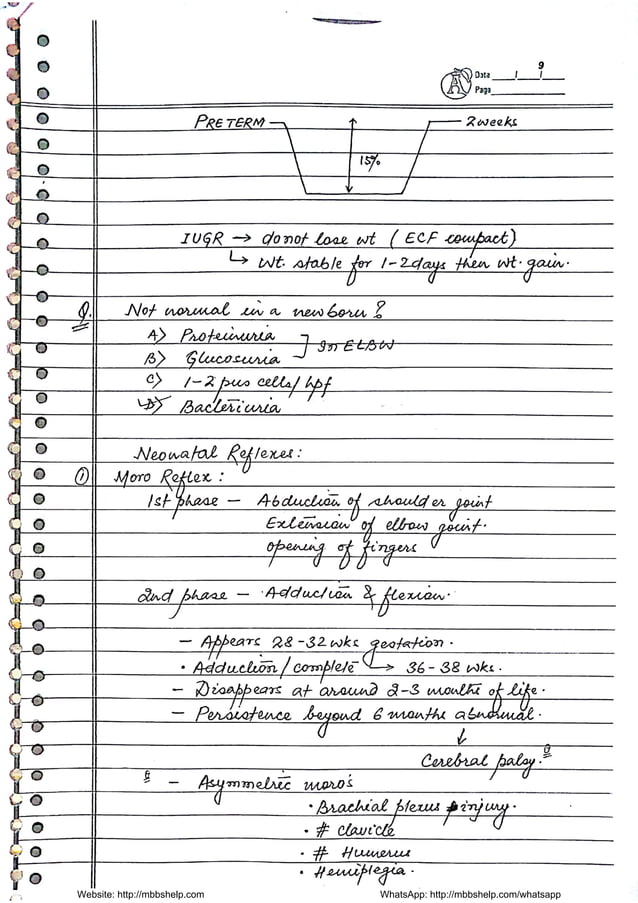 9
Date / /
Page
PRETERM 2 weeks
15%
IUGR → do not lose wt ( ECF compact)
↳ Wt. stable for 1-2 days then wt. gain.
Q. Not normal in a newborn?
A) Proteinuria
B) Glucosuria ] In ELBW
C) 1-2 pus cells/hpf
D) Bacteriuria
Neonatal Reflexes:
① Moro Reflex:
1st phase - Abduction of shoulder joint
Extension of elbow joint.
opening of fingers
2nd phase - Adduction & flexion.
- Appears 28-32 wks gestation.
• Adduction/complete ↳ 36-38 wks.
- Disappears at around 2-3 months of life.
- Persistence beyond 6 months abnormal.
↓
Cerebral palsy. Q
Q - Asymmetric moro's
• Brachial plexus injury.
• # clavicle
• # Humerus
• Hemiplegia.
Website: http://mbbshelp.com WhatsApp: http://mbbshelp.com/whatsapp